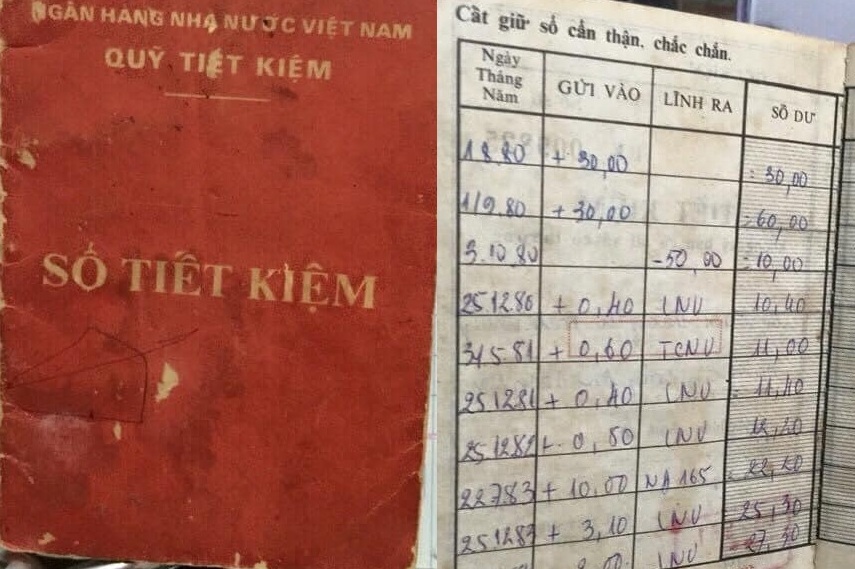 NGÂN HÀNG NHÀ NƯỚC VIỆT NAM
QUỸ TIẾT KIỆM
SỔ TIẾT KIỆM
Cất giữ sổ cẩn thận, chắc chắn.
Ngày Tháng Năm GỬI VÀO LĨNH RA SỐ DƯ
1.8.80 + 30,00 = 30,00
1/9.80 + 30,00 = 60,00
3.10.80 -50,00 = 10,00
25.12.80 + 0,40 LNV 10,40
31/5.81 + 0,60 TCNV 11,00
25.12.81 + 0,40 LNV 11,40
25.12.82 + 0,80 LNV
22.7.83 + 10,00 NA 165
25.12.83 + 3,10 LNV 25,30
LNV 27,30